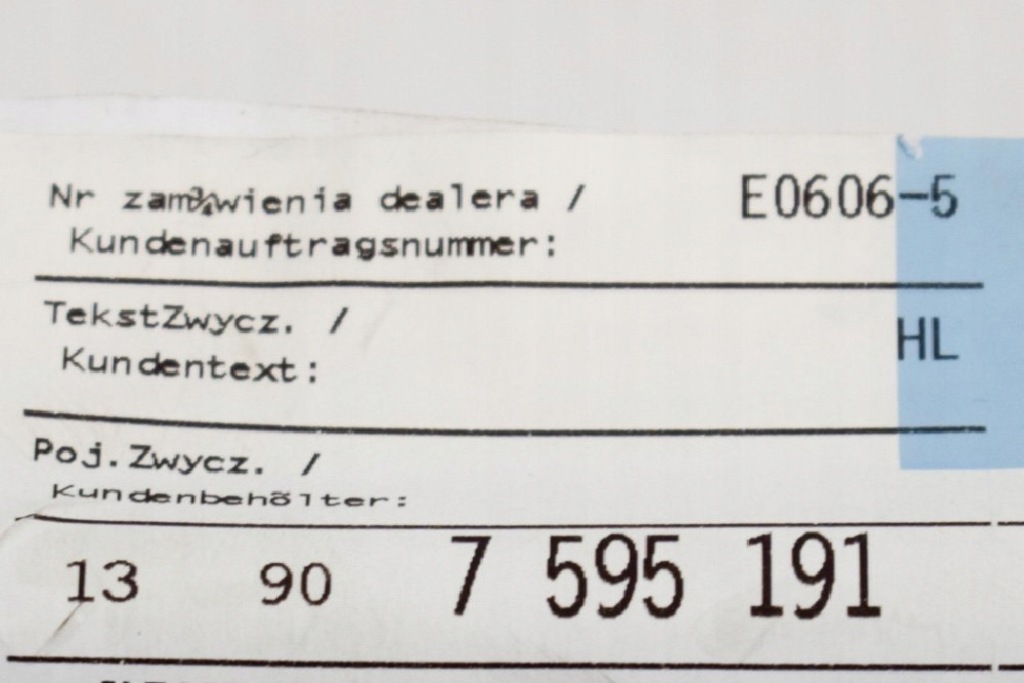 Nr zam¾wienia dealera / E0606-5
Kundenauftragsnummer:
TekstZwycz. /
HL
Kundentext:
Poj.Zwycz. /
Kundenbehõlter:
13 90 7 595 191